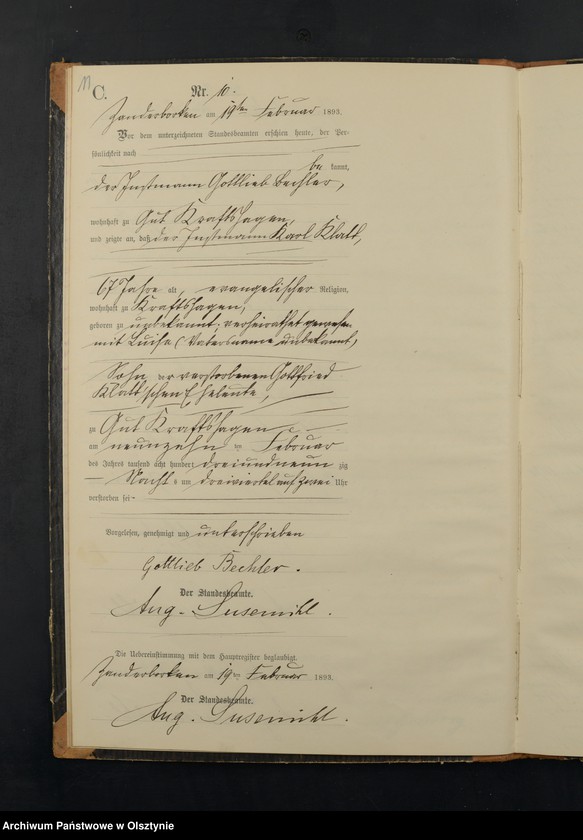 11
C.
Nr. 10.
Zanderborken am 19ten Februar 1893.
Vor dem unterzeichneten Standesbeamten erschien heute, der Per-
sönlichkeit nach
be kannt,
der Instmann Gottlieb Bechler,
wohnhaft zu Gut Kraftshagen,
und zeigte an, daß der Instmann Karl Klatt,
67 Jahre alt, evangelischer Religion,
wohnhaft zu Kraftshagen,
geboren zu unbekannt; verheirathet gewesen
mit Luise (Vatersname unbekannt)
Sohn der verstorbenen Gottfried
Klatt'schen Eheleute,
zu Gut Kraftshagen
am neunzehn ten Februar
des Jahres tausend acht hundert dreiundneun zig
Nachts um dreiviertel auf zwei Uhr
verstorben sei
Vorgelesen, genehmigt und unterschrieben
Gottlieb Bechler.
Der Standesbeamte.
Aug. Susemihl.
Die Uebereinstimmung mit dem Hauptregister beglaubigt.
Zanderborken am 19ten Februar 1893.
Der Standesbeamte.
Aug. Susemihl.
Archiwum Państwowe w Olsztynie